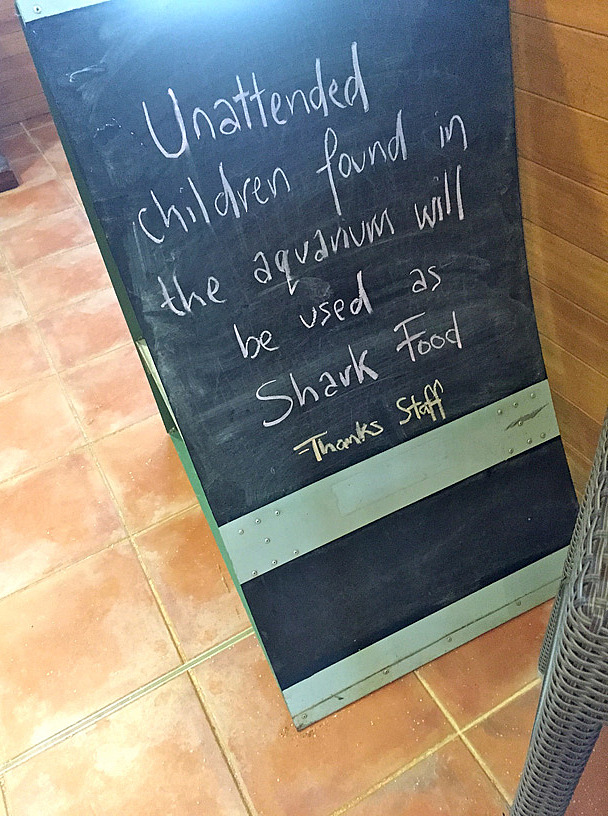 Unattended
children found in
the aquarium will
be used as
Shark Food
-Thanks Staff